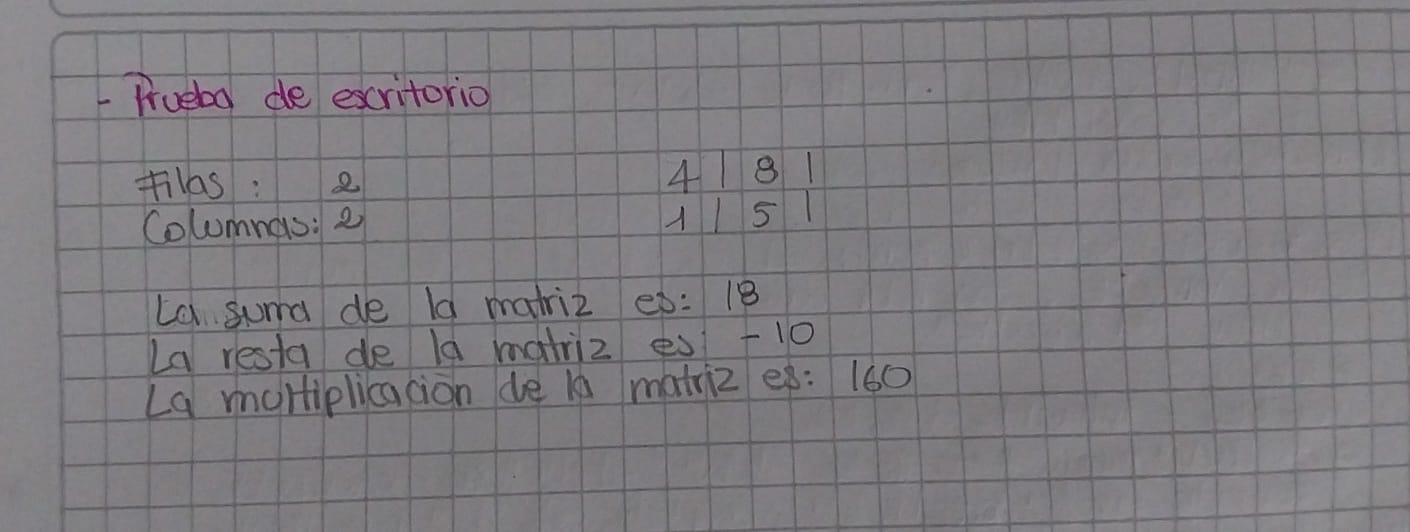 - Prueba de escritorio
Filas: 2
Columnas: 2
4 | 8 |
1 | 5 |
La suma de la matriz es: 18
La resta de la matriz es: -10
La multiplicación de la matriz es: 160